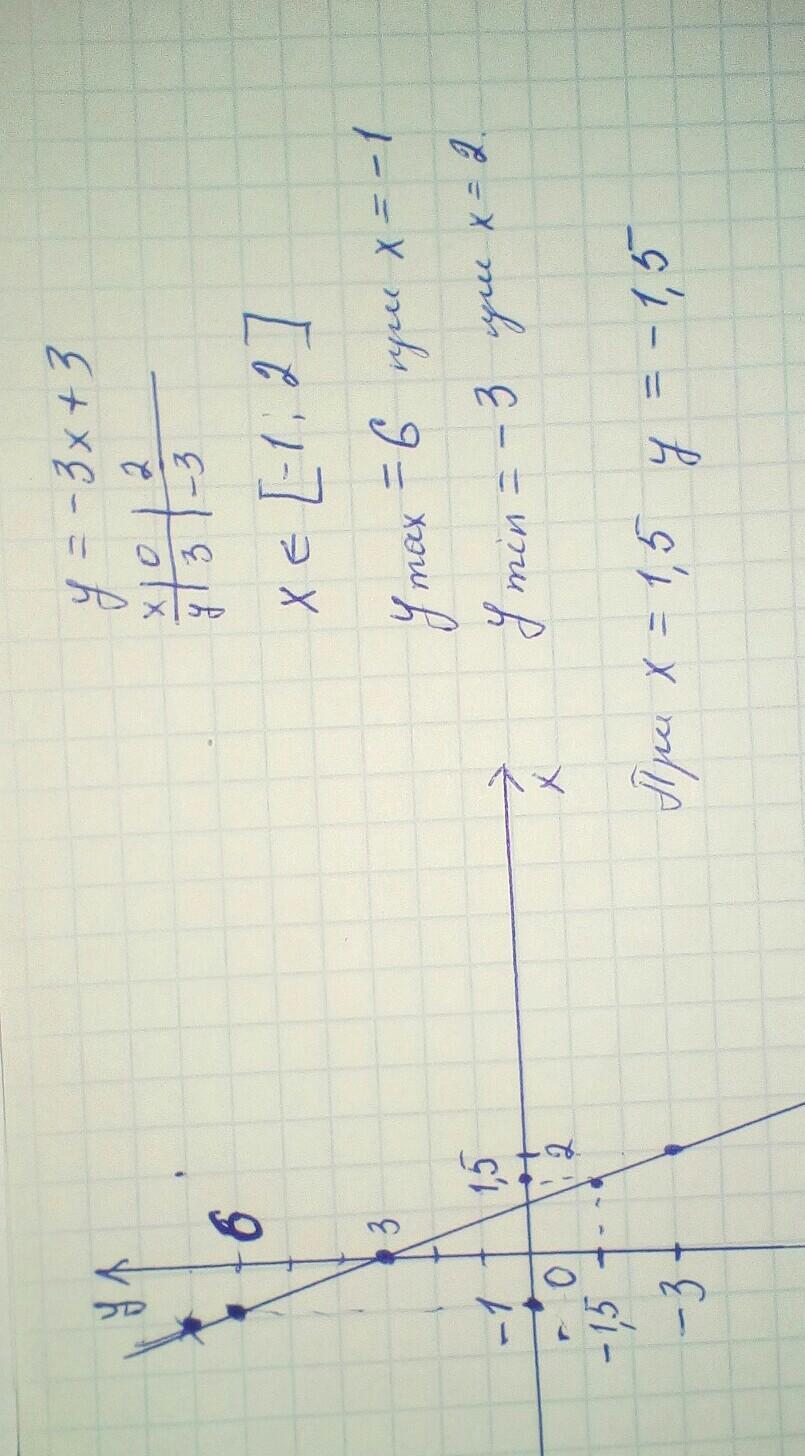 y = -3x + 3
x | 0 | 2
y | 3 | -3
x ∈ [-1; 2]
y max = 6 при x = -1
y min = -3 при x = 2
При x = 1,5 y = -1,5
y
6
3
-1
0
1,5
2
x
-1,5
-3